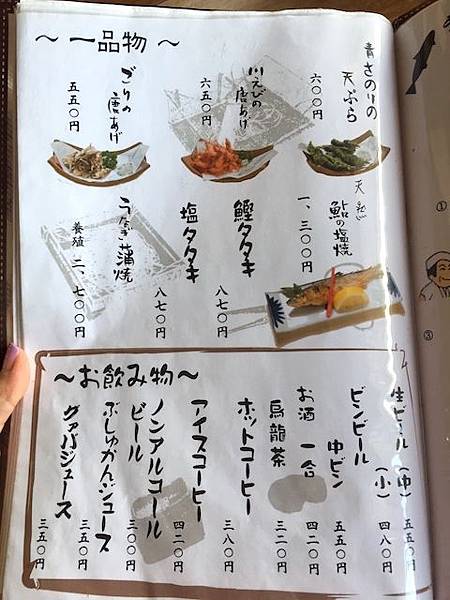 〜一品物〜
青さのりの
天ぷら
六〇〇円
川えびの
唐あげ
六五〇円
ごりの
唐あげ
五五〇円
天然
鮎の塩焼
一、三〇〇円
鰹タタキ
八七〇円
塩タタキ
八七〇円
うなぎ蒲焼
養殖 二、七〇〇円
〜お飲み物〜
生ビール（中） 五五〇円
（小） 四八〇円
ビンビール
中ビン 五五〇円
お酒 一合 四二〇円
烏龍茶 三二〇円
ホットコーヒー 三八〇円
アイスコーヒー 四二〇円
ノンアルコール
ビール 三〇〇円
ぶしゅかんジュース 三五〇円
グァバジュース 三五〇円
①
③